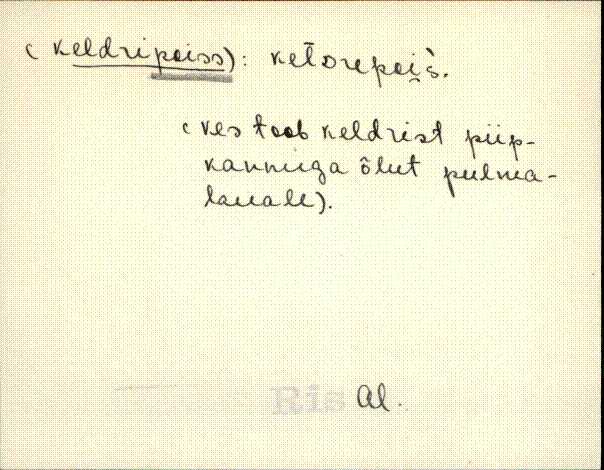 (keldripoiss): ketorepoi̬š.
(kes toob keldrist piip-
kannuga õlut pulma-
lauale).
Ris Al.